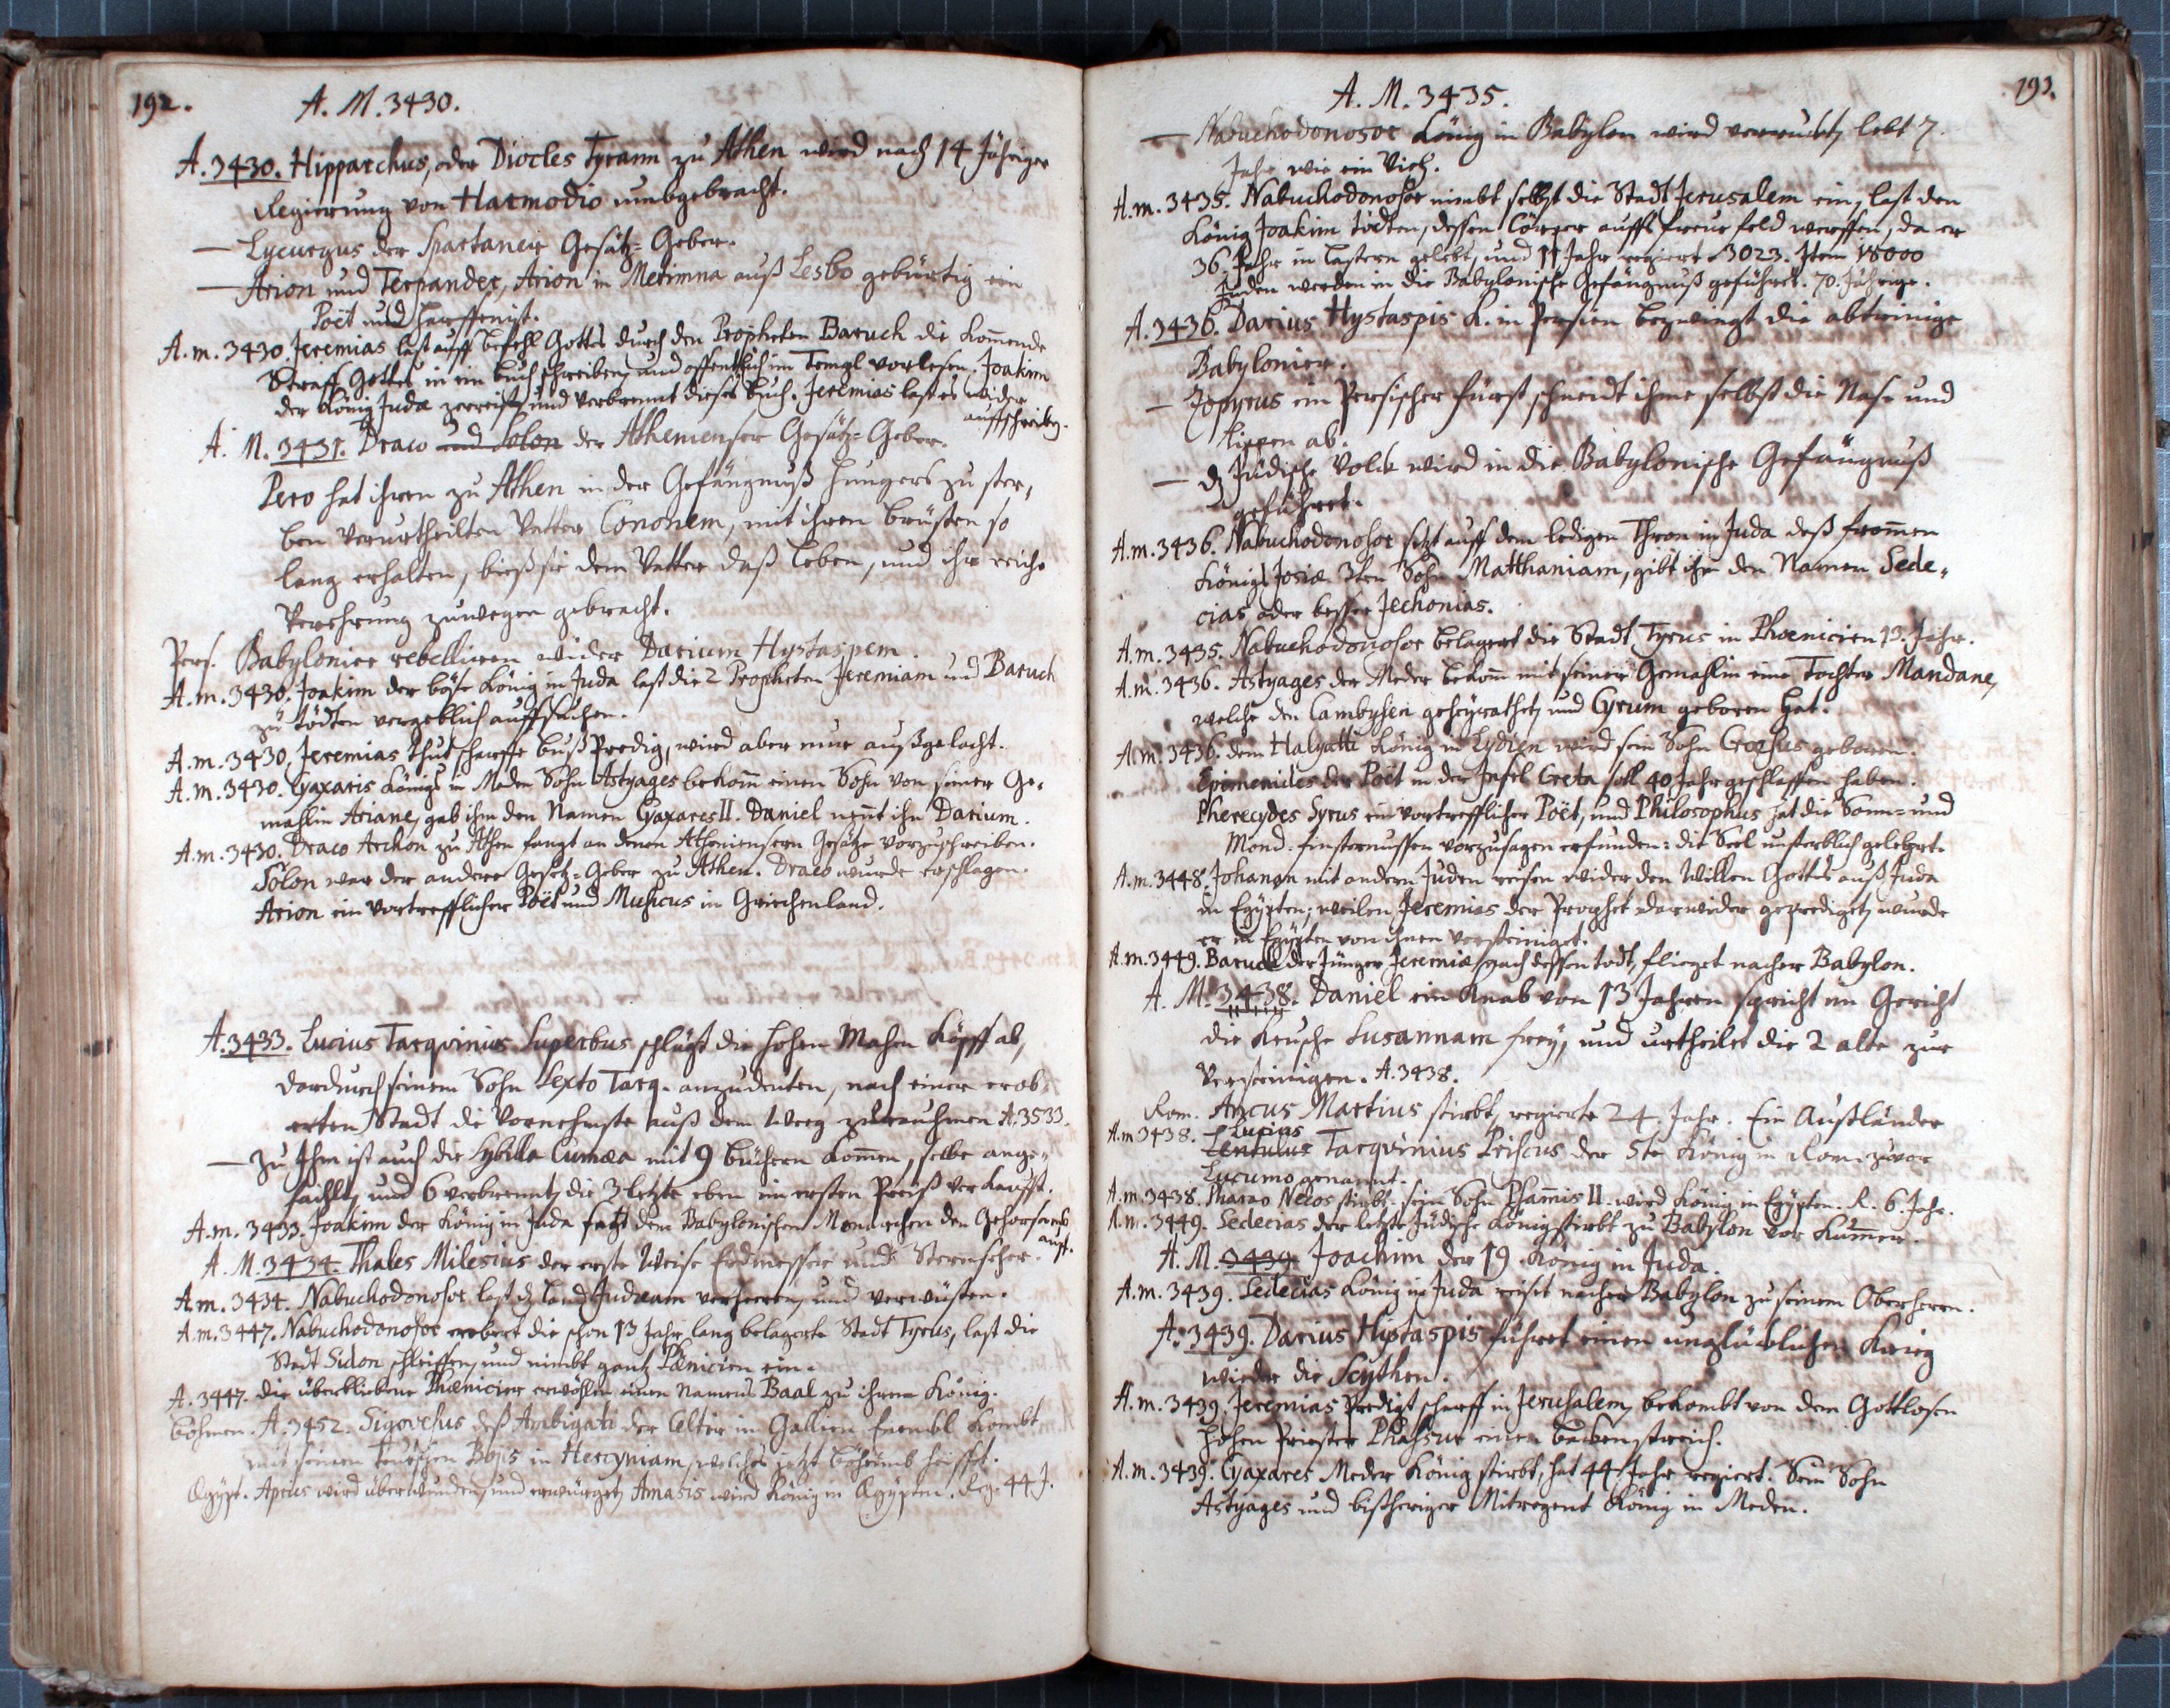 192.
A. M. 3430.
A. 3430. Hipparchus, oder Diocles Tyrann zu Athen wird nach 14 Jähriger
Regierung von Harmodio umbgebracht.
— Lycurgus der Spartaner Gesätz-Geber.
— Arion und Terpander, Arion in Metimna auß Lesbo gebürtig ein
Poët und Harffenist.
A. m. 3430. Jeremias last auff befehl Gottes durch den Propheten Baruch die komende
Straff Gottes in ein buch schreiben, und offentlich im Templ vorlesen. Joakim
der König Juda zerreist, und verbrennt dieses buch. Jeremias last es wider
auffschreiben.
A. M. 3431. Draco und Solon der Athenienser Gesätz-Geber.
Pero hat ihren zu Athen in der Gefängnuß Hungers zu ster,
ben verurtheilten Vatter Cononem, mit ihren brüsten so
lang erhalten, bieß sie dem Vatter daß leben, und ihr reiche
Verehrung zuwegen gebracht.
Pers. Babylonier rebelliren wider Darium Hystaspem.
A. m. 3430. Joakim der böse König in Juda last die 2 Propheten Jeremiam und Baruch
zu tödten vergeblich auffsuchen.
A. m. 3430, Jeremias thut scharffe buß Predig, wird aber nur außgelacht.
A. m. 3430. Cyaxaris Königs in Meden Sohn Astyages bekom einen Sohn von seiner Ge-
mahlin Ariane, gab ihm den Namen Cyaxares II. Daniel nent ihn Darium.
A. m. 3430. Draco Archon zu Athen fangt an denen Atheniensern Gesätze vorzuschreiben.
Solon war der andere Gesetz-Geber zu Athen. Draco wurde erschlagen.
Arion ein vortrefflicher Poët und Musicus in Griechenland.
A. 3433. Lucius Tarqvinius Superbus schlägt die hohen Mahen Köpff ab,
dardurch seinem Sohn Sexto Tarq. anzudeuten, nach einer erob-
erten Stadt die Vornehmste auß dem Weeg zu rauhmen A. 3533.
— Zu Ihm ist auch die Sybilla Cumæa mit 9 büchern komen, selbe ange-
failht, und 6 verbrennt, die 3 letzte eben im ersten Preiß verkaufft.
A. m. 3433. Joakim der König in Juda sagt dem Babylonischen Monarchen den Gehorsamb
auff.
A. M. 3434. Thales Milesius der erste Weise Erdmesser und Sternseher.
A. m. 3434. Nabuchodonosor last dz land Judæam verheeren, und verwüsten.
A. m. 3447. Nabuchodonosor erobert die schon 13 Jahr lang belagerte Stadt Tyrus, last die
Stadt Sidon schleiffen, und nimbt gantz Phœnicien ein.
A. 3447. die überbliebene Phœnicier erwöhlen einen Namens Baal zu ihrem König.
Böhmen. A. 3452. Sigovesus deß Ambigati der Celtier in Gallien kombt
mit seinen teutschen Bojis in Hercyniam, welches jetzt böheimb heisset.
Ægypt. Apries wird überwunden, und erwürget, Amasis wird König in Ægypten. Reg. 44 J.
193.
A. M. 3435.
— Nabuchodonosor König in Babylon wird verruckt, lebt 7
Jahr wie ein Vieh.
A. m. 3435. Nabuchodonosor nimbt selbst die Stadt Jerusalem ein, last den
König Joakim tödten, dessen Cörper auffs freye feld werffen, da er
36. Jahr in lastern gelebt, und 11 Jahr regiert 3023. Item 18000
Juden werden in die Babylonische Gefängnuß geführet. 70. Jährige.
A. 3436. Darius Hystaspis K. in Persien bezwingt die abtrinige
Babylonier.
— Zopyrus ein Persischer fürst schneidt ihme selbst die Nase und
Lippen ab.
— dz Jüdische Volck wird in die Babylonische Gefängnuß
geführet.
A. m. 3436. Nabuchodonosor setzt auff den ledigen Thron in Juda deß fromen
Königs Josiæ 3ten Sohn Matthaniam, gibt ihm den Namen Sede-
cias oder besser Jechonias.
A. m. 3435. Nabuchodonosor belagert die Stadt Tyrus in Phœnicien 13. Jahr.
A. m. 3436. Astyages der Meder bekom mit seiner Gemahlin eine Tochter Mandane,
welche den Cambysen geheyrathet, und Cyrum geboren hat.
A. m. 3436. dem Halyatti König in Lydien wird sein Sohn Crœsus geboren.
Epimenides der Poët in der Insel Creta soll 40 Jahr geschlaffen haben.
Pherecydes Syrus ein vortrefflicher Poët, und Philosophus hat die Sonn- und
Mond-finsternussen vorzusagen erfunden: die Seel unsterblich gelehrt.
A. m. 3448. Johanan mit andern Juden reisen wider den Willen Gottes auß Juda
in Egypten; weilen Jeremias der Prophet darwider geprediget, wurde
er in Egypten von ihnen versteiniget.
A. m. 3449. Baruch der Jünger Jeremiæ, nach dessen todt, fliehet nacher Babylon.
A. M. 3438. Daniel ein Knab von 13 Jahren spricht im Gericht
die keusche Susannam frey, und urtheilet die 2 alte zur
Versteinigen. A. 3438.
Rom. Ancus Martius stirbt, regierte 24. Jahr. Ein Außländer
A. m 3438. Lucius
Lentulus Tarqvinius Priscus der 5te König in Rom. zuvor
Lucumo genannt.
A. m. 3438. Pharao Necos stirbt, sein Sohn Psamis II. wird König in Egypten. R. 6. Jahr.
A. m. 3449. Sedecias der letzte Jüdische König stirbt zu Babylon vor Kumer.
A. M. 3439. Joachim der 19. König in Juda.
A. m. 3439. Sedecias König in Juda reist nacher Babylon zu seinem Oberherrn.
A. 3439. Darius Histaspis führet einen unglücklichen Krieg
wieder die Scythen.
A. m. 3439. Jeremias Predigt scharff in Jerusalem, bekombt von dem Gottlosen
hohen Priester Phassur einen backenstreich.
A. m. 3439. Cyaxares Meder König stirbt, hat 44 Jahr regiert. Sein Sohn
Astyages und bißheriger Mitregent König in Meden.